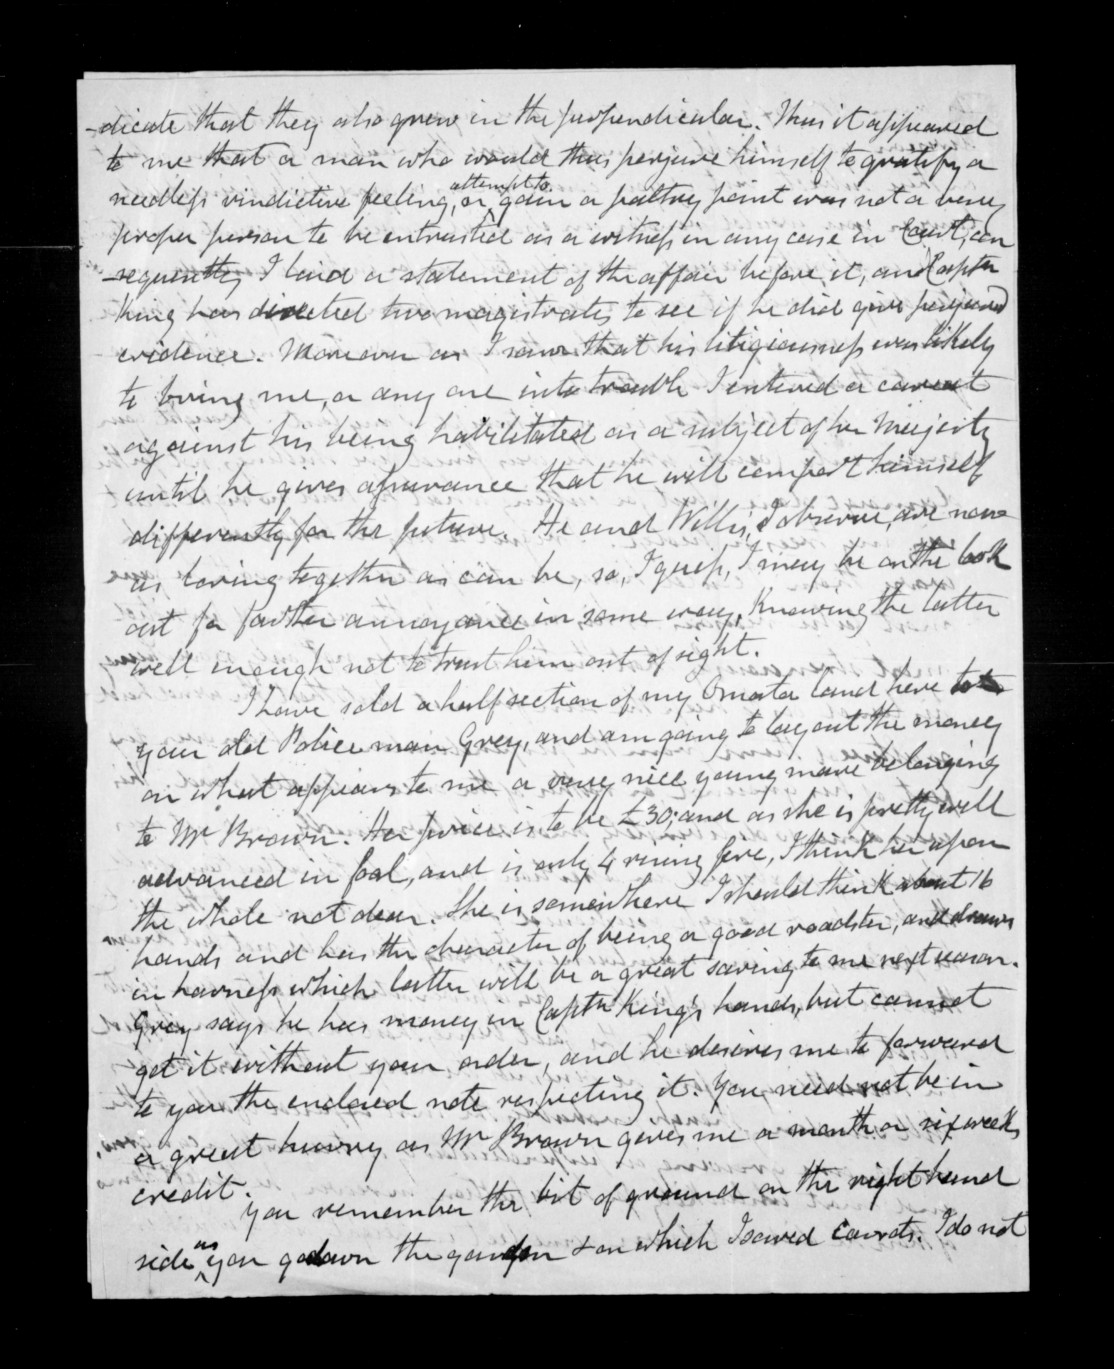 -dicate that they also grew in the perpendicular. Thus it appeared
to me that a man who would thus perjure himself to gratify a
needless vindictive feeling, or attempt to gain a paltry point was not a very
proper person to be entrusted as a witness in any case in Court, con
-sequently I laid a statement of the affair before it, and Captn
King has directed two magistrates to see if he did give perjured
evidence. Moreover as I saw that his litigiousness was likely
to bring me, or any one into trouble I entered a caveat
against his being habilitated as a subject of her Majesty
until he gives assurance that he will comport himself
differently for the future. He and Willis, I observe, are now
as loving together as can be, so, I guess, I may be on the look
out for farther annoyance in some way, knowing the latter
well enough not to trust him out of sight.
I have sold a half section of my Omata land here to
your old Police man Grey, and am going to lay out the money
on what appears to me a very nice young mare belonging
to Mr Brown. Her price is to be £30; and as she is pretty well
advanced in foal, and is only 4 rising five, I think her upon
the whole not dear. She is somewhere I should think about 16
hands and has the character of being a good roadster, and draws
in harness which latter will be a great saving to me next season.
Grey says he has money in Captn King's hands, but cannot
get it without your order, and he desires me to forward
to you the enclosed note respecting it. You need not be in
a great hurry as Mr Brown gives me a month or six weeks
credit.
You remember the bit of ground on the right hand
side as you go down the garden & on which I sowed Carrots. I do not